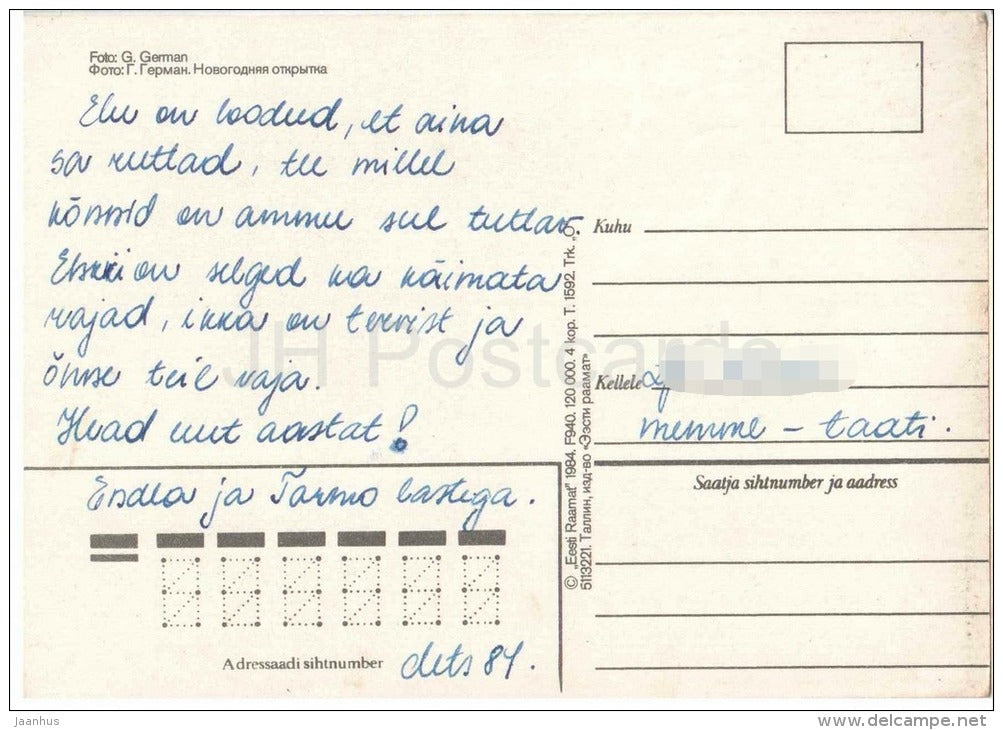 Foto: G. German
Фото: Г. Герман. Новогодняя открытка
Elu on loodud, et aina
sa ruttad, tee millel
kõnnid on ammu sul tuttav.
Eksi on selged ka käimata
rajad, ikka on tervist ja
õnne teil vaja.
Head uut aastat!
Endla ja Tarmo lastega.
Adressaadi sihtnumber
dets 84.
© „Eesti Raamat" 1984. F940. 120 000. 4 kop. T. 1592. Trk. „O.
5113221. Таллин, изд-во «Ээсти раамат»
Kuhu
Kellele
memme - taati.
Saatja sihtnumber ja aadress
JH Postcards
jaanhus
www.delcampe.net